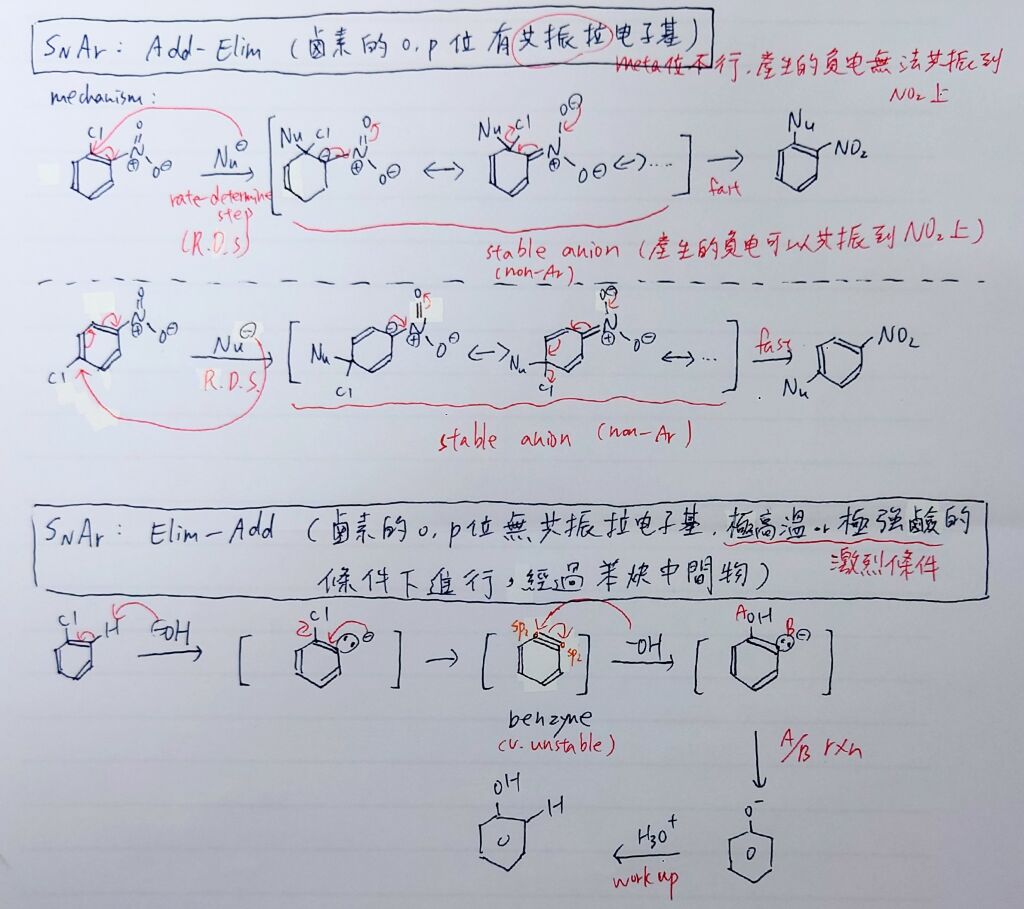 SNAr: Add-Elim (鹵素的 o,p位有共振拉电子基)
meta位不行,產生的负电無法共振到
NO2上
mechanism:
Cl N O O⊖ ⊕
Nu⊖
rate-determine
step
(R.D.S)
Nu Cl N O O⊖ ⊕ ↔ Nu Cl N O⊖ O⊖ ⊕ ↔ ....
fast
Nu NO2
stable anion (產生的負电可以共振到 NO2上)
(non-Ar)
Cl N O O⊖ ⊕
Nu⊖
R.D.S.
Nu Cl N O O⊖ ⊕ ↔ Nu Cl N O⊖ O⊖ ⊕ ↔ ...
fast
NO2 Nu
stable anion (non-Ar)
SNAr: Elim-Add (鹵素的 o,p位無共振拉电子基,極高溫 or 極強鹼的
條件下進行,經過苯炔中間物)
激烈條件
Cl H -OH Cl ⊖ sp2 sp2 -OH A OH B ⊖
benzyne
(v. unstable)
A/B rxn
OH H
H3O+
work up
O-